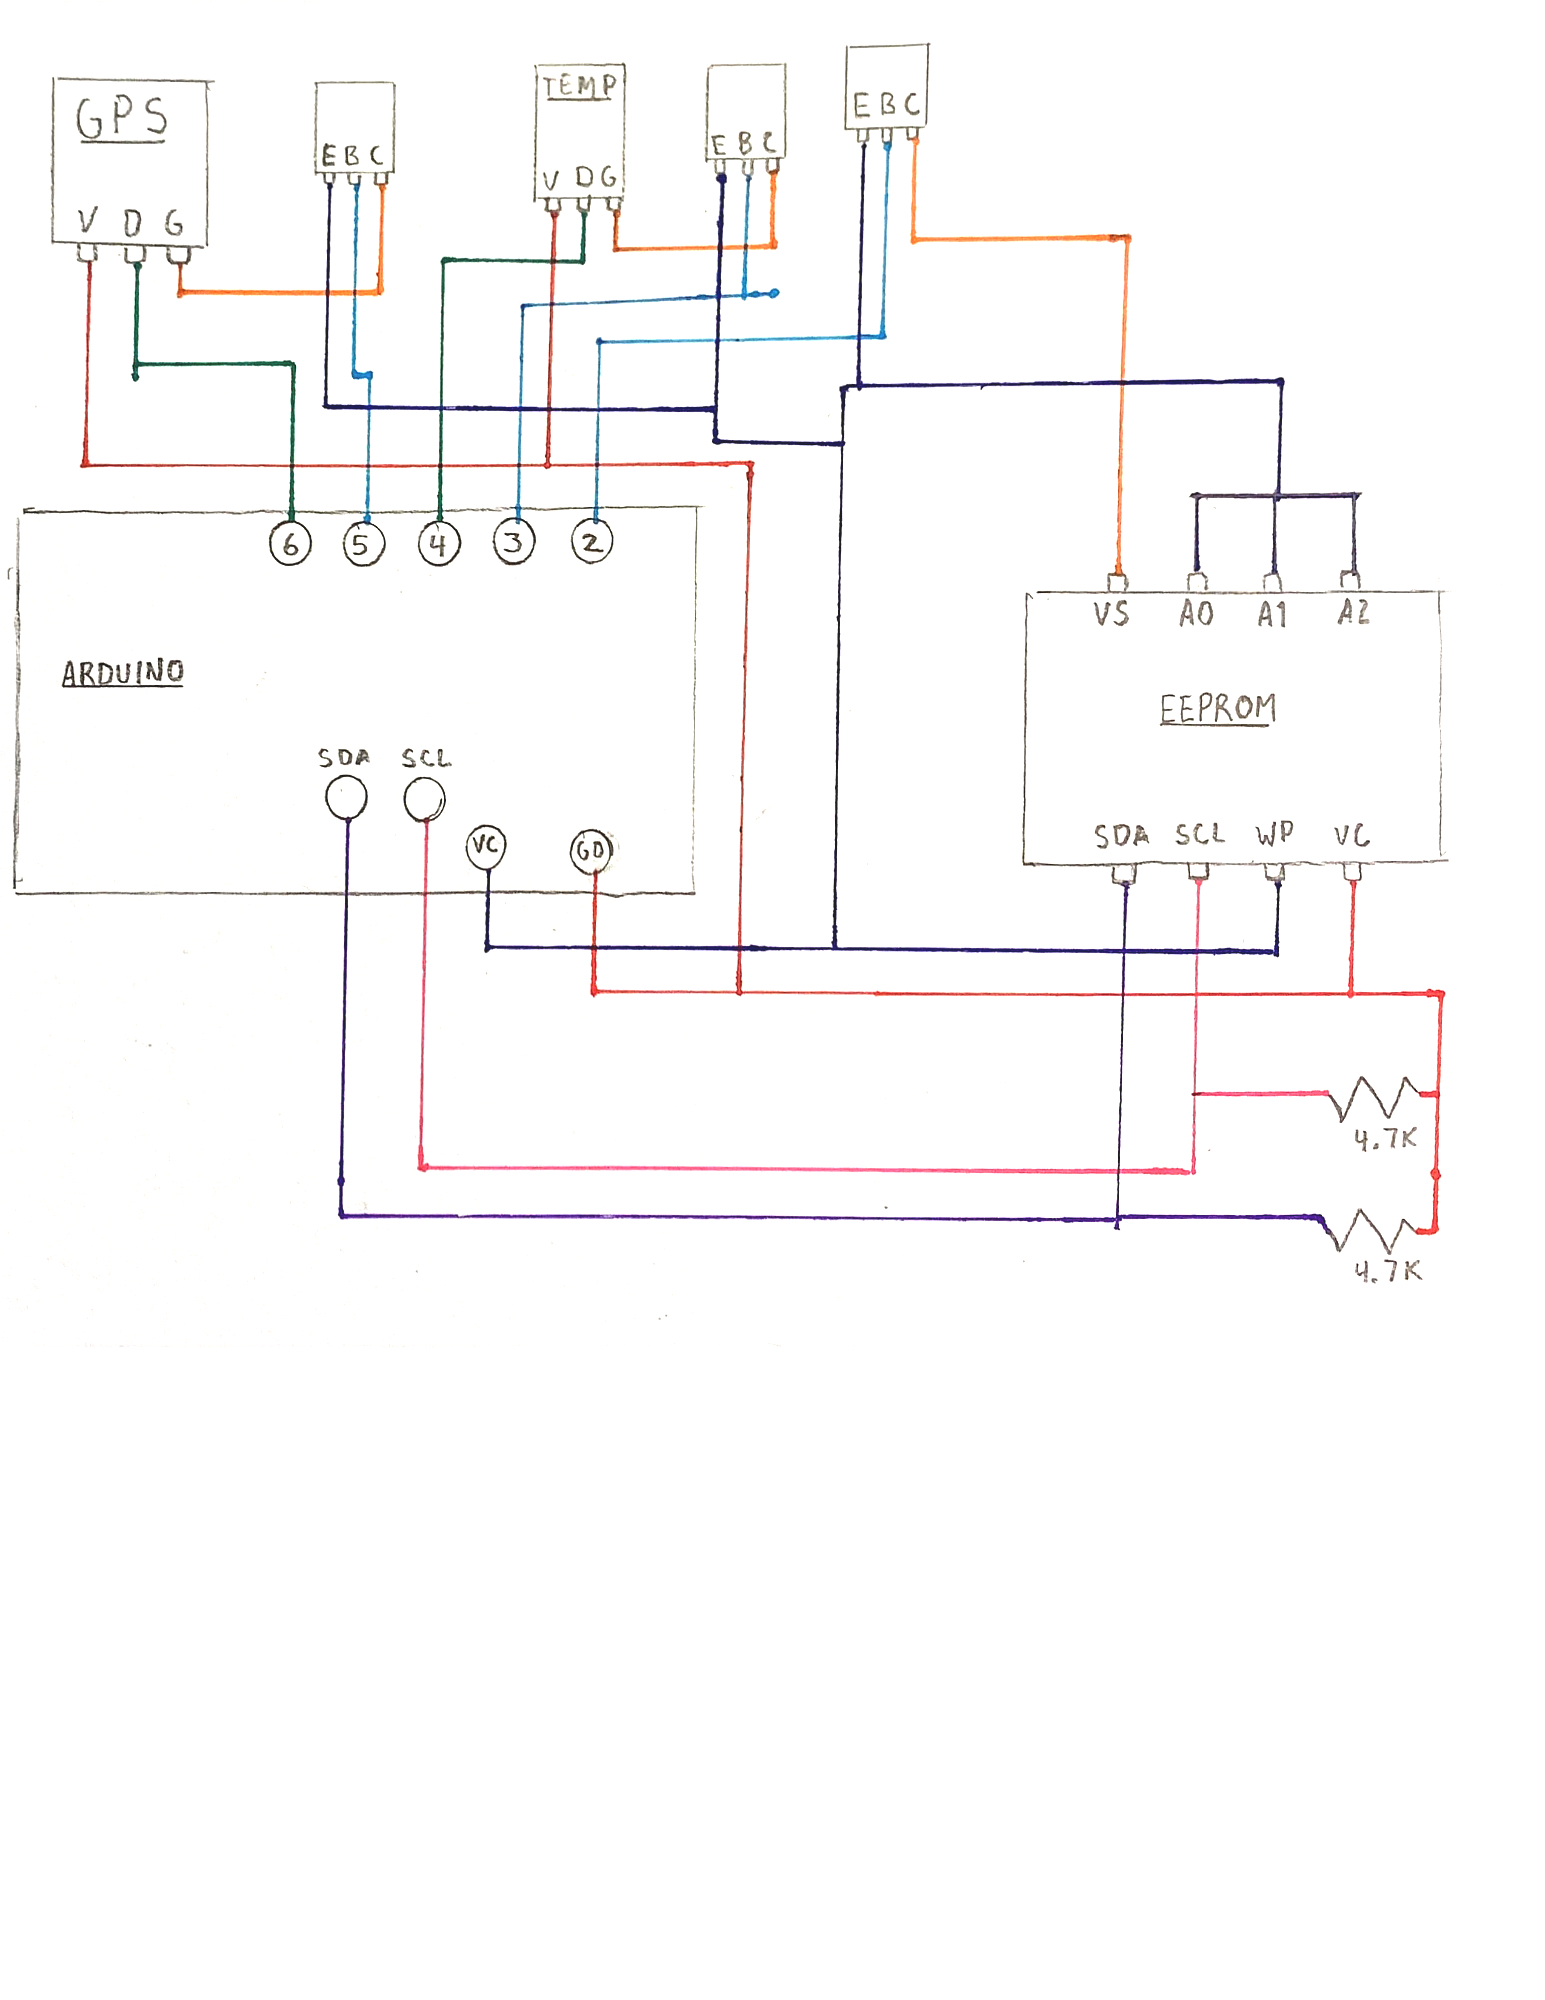 GPS
V D G
E B C
TEMP
V D G
E B C
E B C
6 5 4 3 2
ARDUINO
SDA SCL
VC GD
VS A0 A1 A2
EEPROM
SDA SCL WP VC
4.7K
4.7K